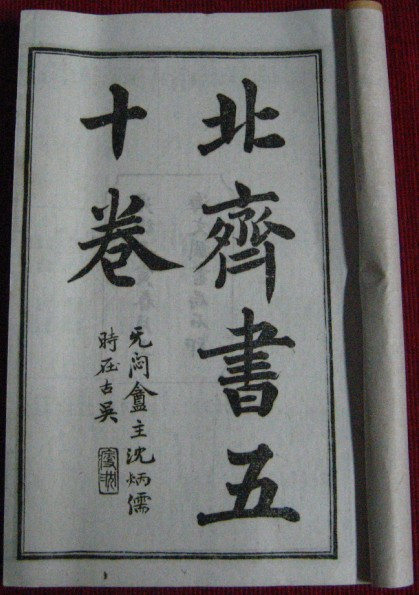 北齊書五
十卷
无悶盦主沈炳儒
時在古吳